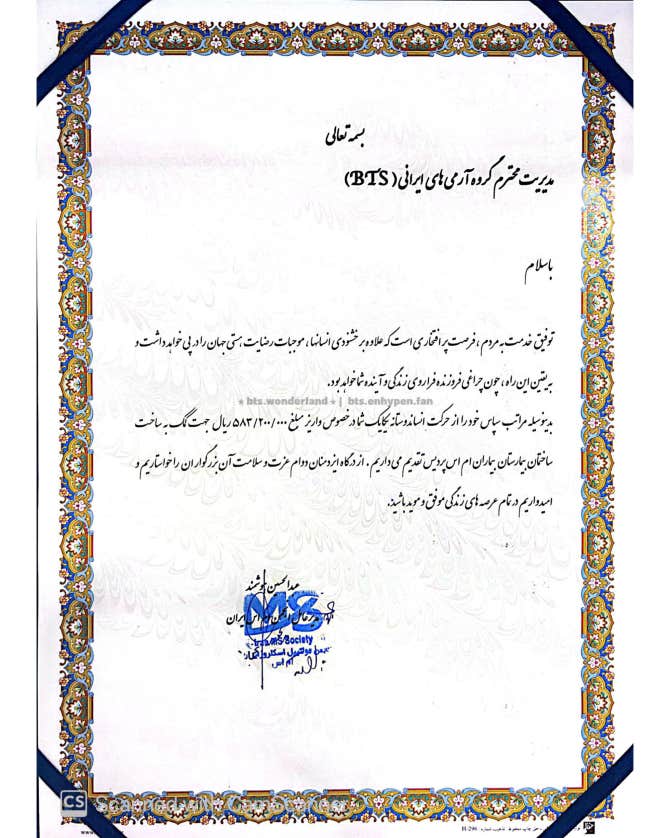 بسمه تعالی
مدیریت محترم گروه آرمی های ایرانی (BTS)
باسلام
توفیق خدمت به مردم ، فرصت پر افتخاری است که علاوه بر خشنودی انسانها ، موجبات رضایت هستی جهان را در پی خواهد داشت و
به یقین این راه ، چون چراغی فروزنده فراروی زندگی و آینده شما خواهد بود.
★ bts.wonderland ★ | bts.enhypen.fan
بدینوسیله مراتب سپاس خود را از حرکت انساندوستانه یکایک شما در خصوص واریز مبلغ ۵۸۳/۲۰۰/۰۰۰ ریال جهت کمک به ساخت
ساختمان بیمارستان بیماران ام اس پردیس تقدیم می داریم . از درگاه ایزدمنان دوام عزت و سلامت آن بزرگواران را خواستاریم و
امیدواریم در تمام عرصه های زندگی موفق و موید باشید.
عبدالحسن هوشمند
مدیرعامل انجمن ام اس ایران
MS
Iran MS Society
انجمن مولتیپل اسکلروز ایران
ام اس
CS Scanned with CamScanner
www.
H-296